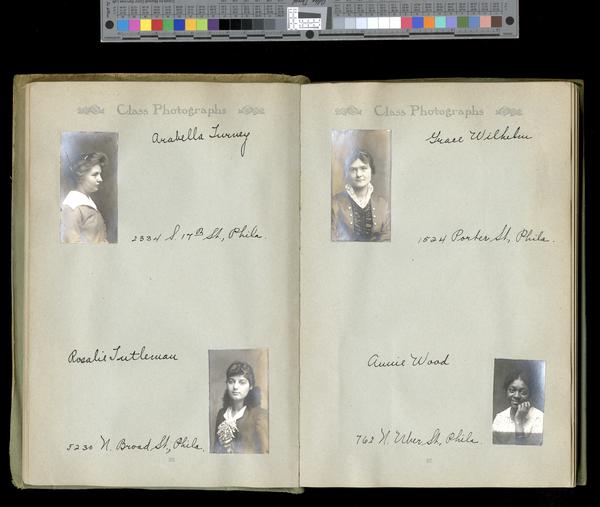 Class Photographs
Arabella Turney
2334 S. 17th St., Phila
Rosalie Tutleman
5230 N. Broad St., Phila.
Class Photographs
Grace Wilhelm
1524 Porter St., Phila.
Annie Wood
762 N. Uber St., Phila.